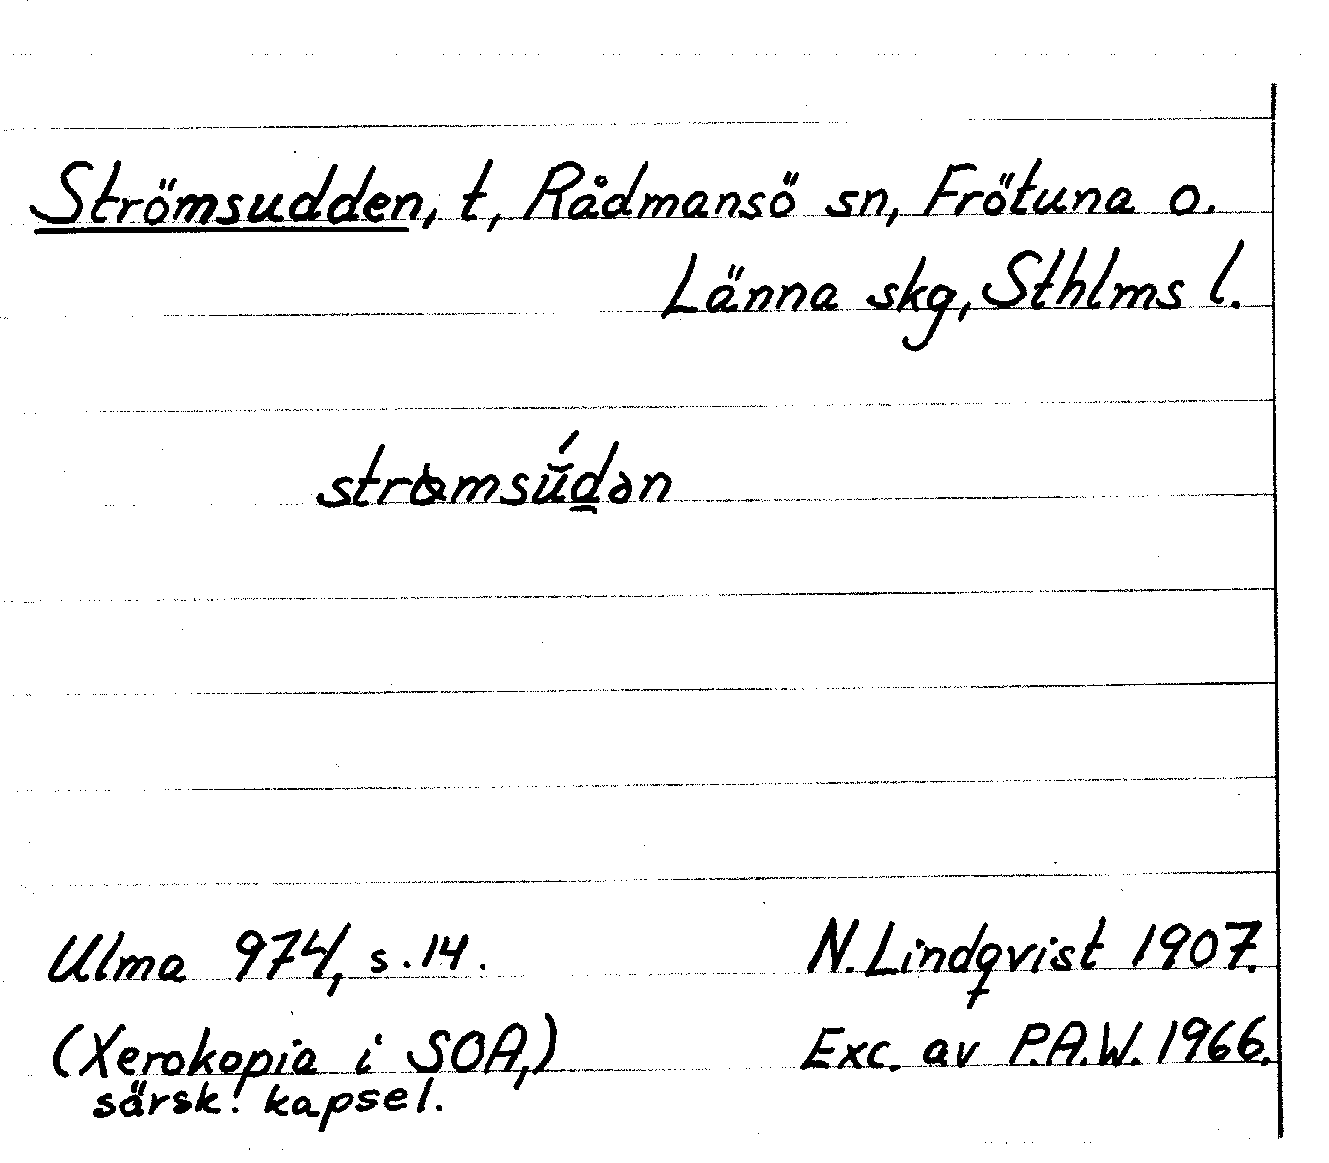 Strömsudden, t, Rådmansö sn, Frötuna o.
Länna skg, Sthlms l.
strɷmsū́d̲ən
Ulma 974, s. 14.
N. Lindqvist 1907.
(Xerokopia i SOA,)
särsk. kapsel.
Exc. av P.A.W. 1966.